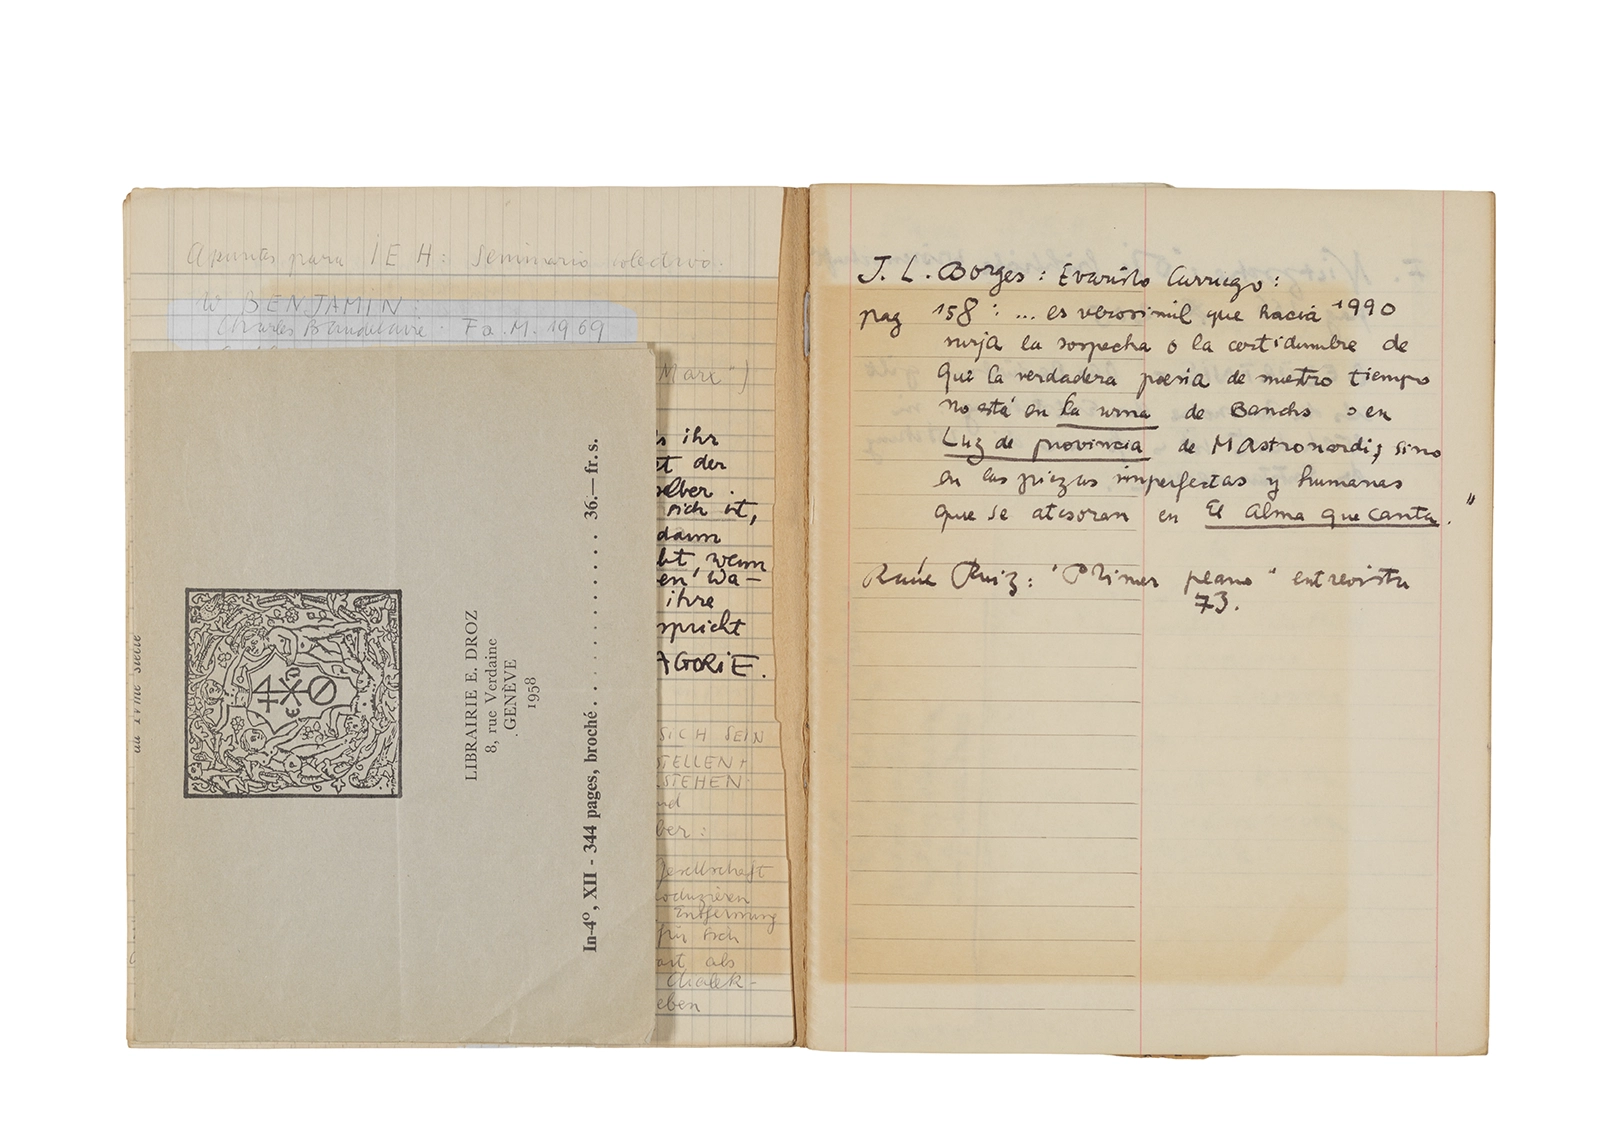 Apuntes para IEH: Seminario colectivo.
W BENJAMIN:
Charles Baudelaire. Fa. M. 1969
Marx")
ihr
et der
selber.
sich ist,
dann
ht, wenn
en' Wa-
ihre
spricht
AGORIE.
SICH SEIN
STELLEN
STEHEN
nd
ber:
Gesellschaft
oduzieren
Entfernung
für sich
art als
dialek-
eben
du XVIme siècle
4 X O
LIBRAIRIE E. DROZ
8, rue Verdaine
GENÈVE
1958
In-4°, XII - 344 pages, broché . . . . . . . . . . 36.— fr. s.
J. L. Borges: Evaristo Carriego:
pag 158: ... es verosimil que hacia 1990
surja la sospecha o la certidumbre de
que la verdadera poesia de nuestro tiempo
no está en la urna de Banchs o en
Luz de provincia de Mastronardi; sino
en las piezas imperfectas y humanas
que se atesoran en El Alma que canta."
Raúl Ruiz: "Primer plano" entrevista
73.